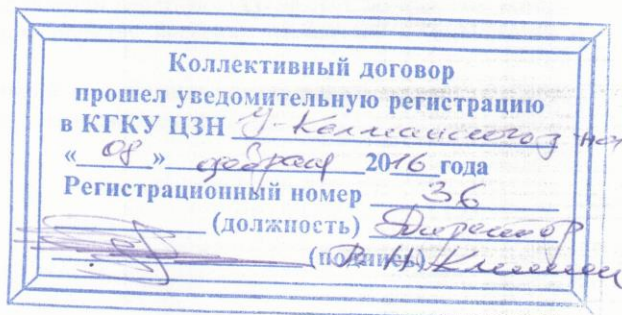 Коллективный договор
прошел уведомительную регистрацию
в КГКУ ЦЗН У-Калманского
«08» февраля 2016 года
Регистрационный номер 36
(должность) Директор
(подпись) В.Н.